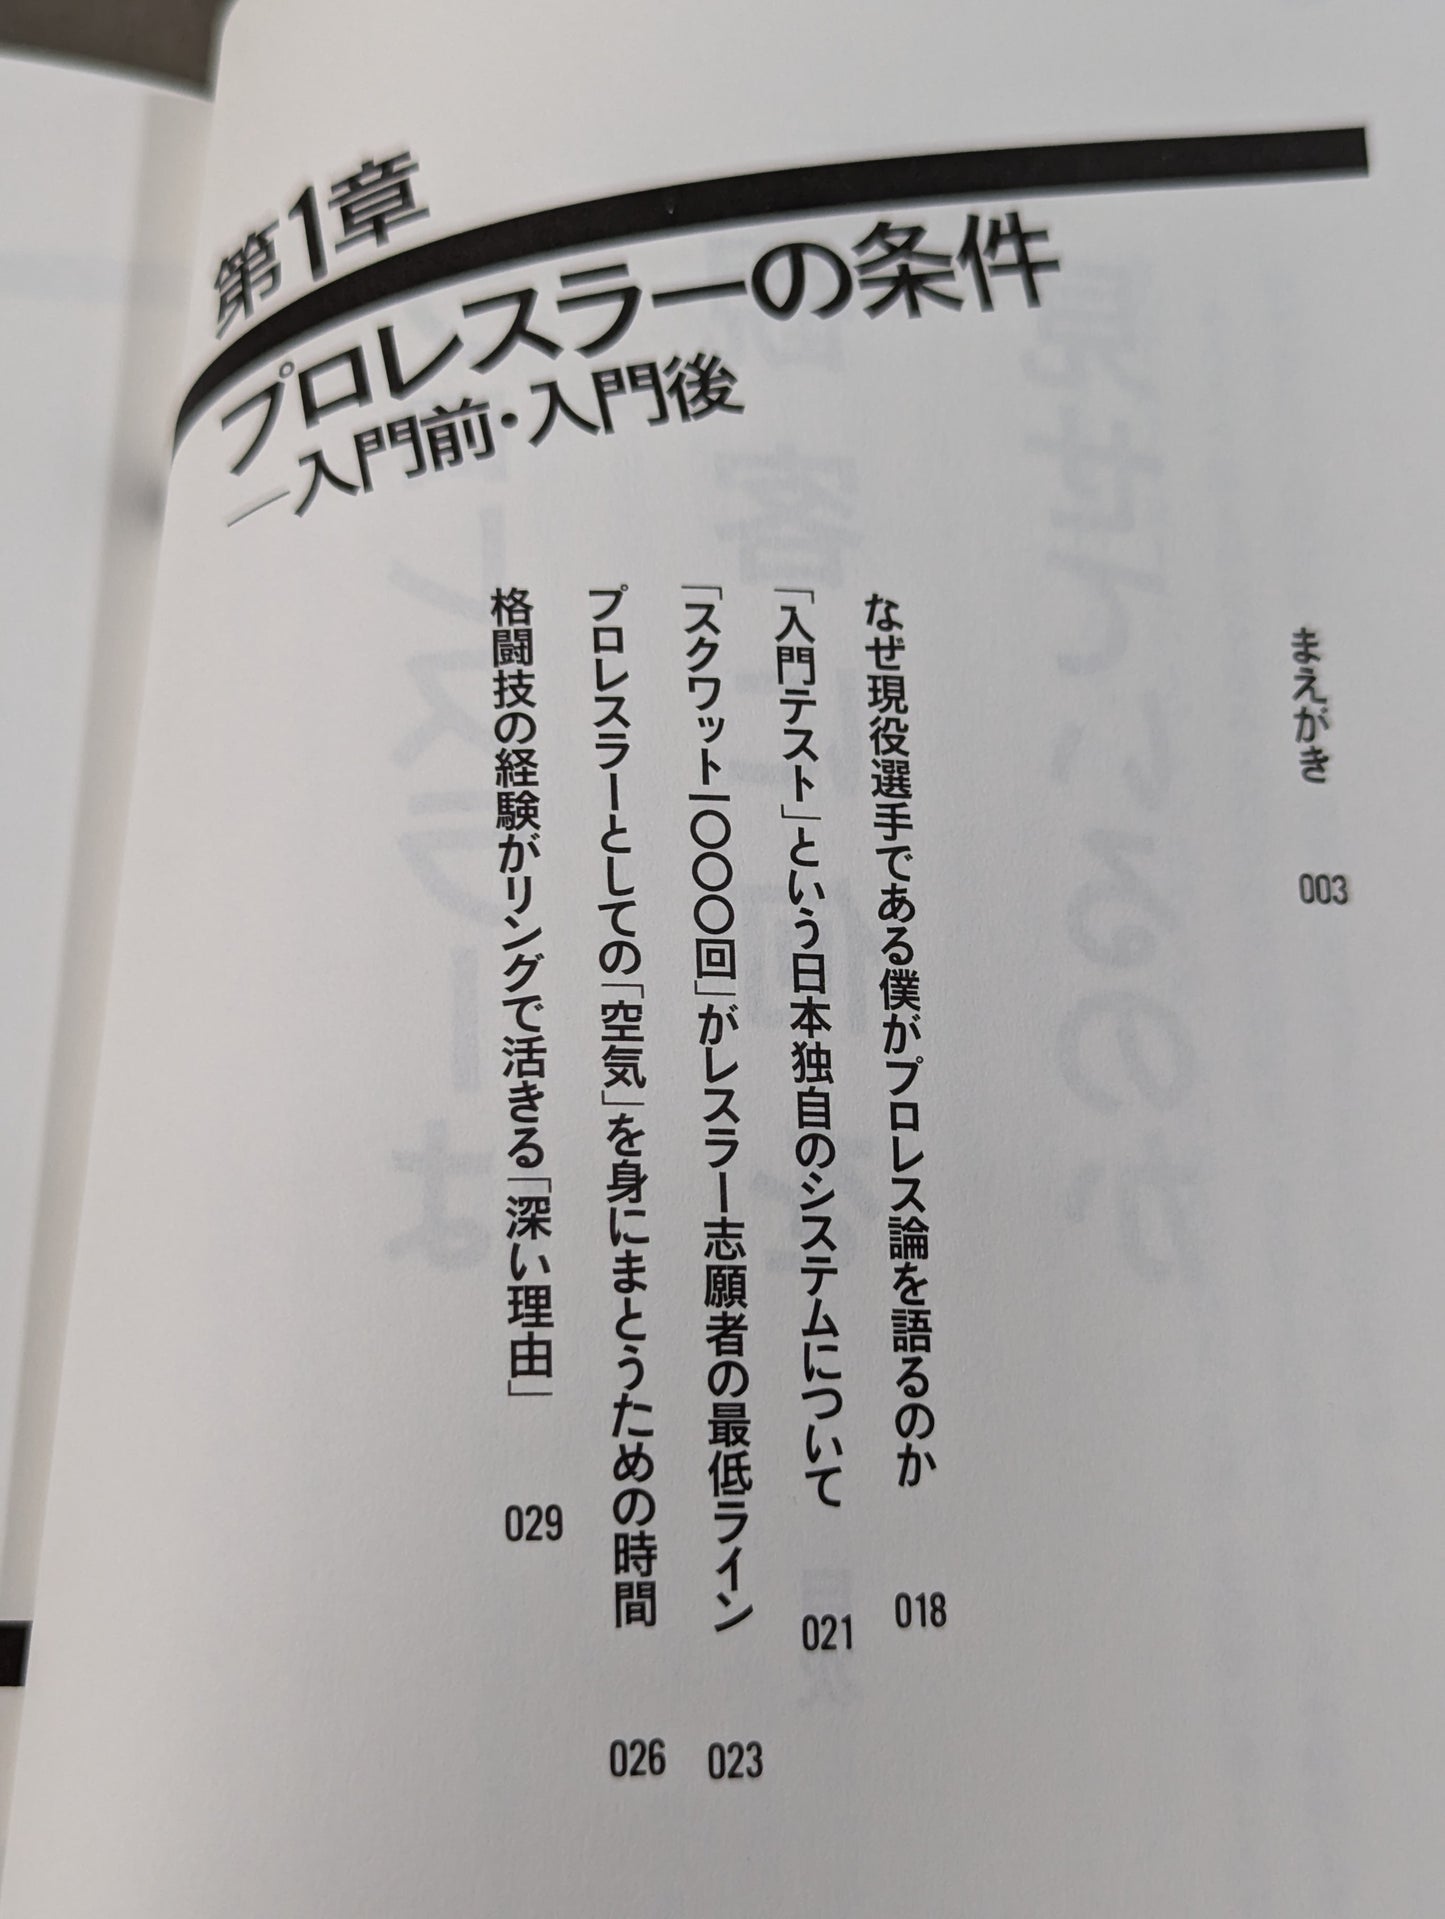 まえがき 003
第1章
プロレスラーの条件
―入門前・入門後
なぜ現役選手である僕がプロレス論を語るのか 018
「入門テスト」という日本独自のシステムについて 021
「スクワット一〇〇〇回」がレスラー志願者の最低ライン 023
プロレスラーとしての「空気」を身にまとうための時間 026
格闘技の経験がリングで活きる「深い理由」 029